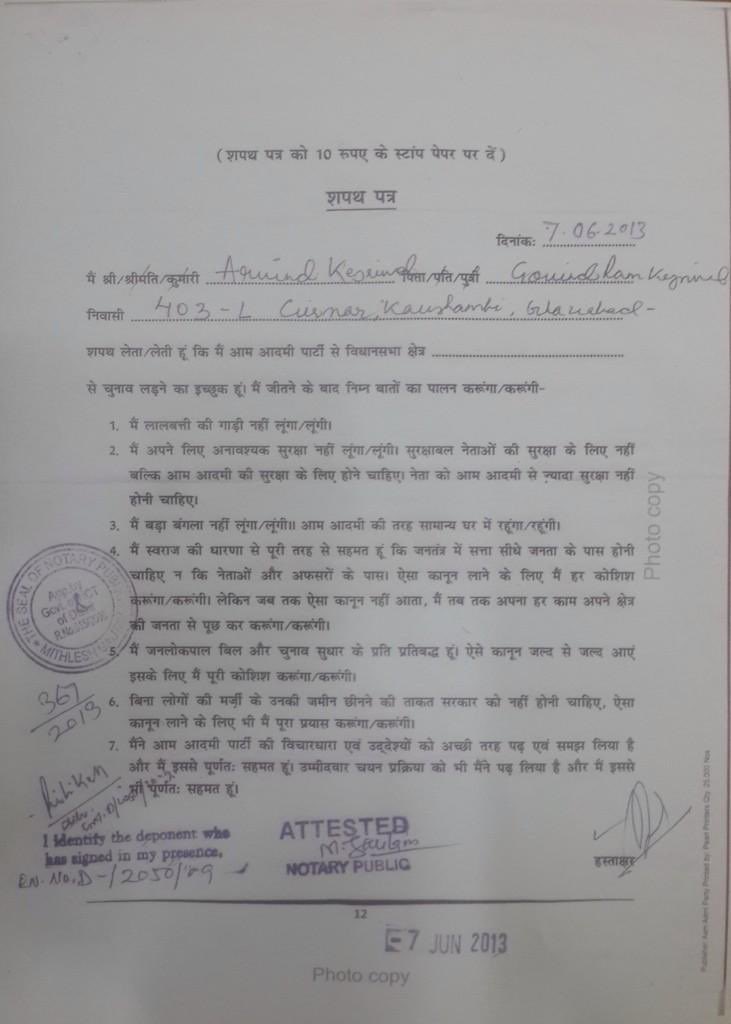 (शपथ पत्र को 10 रूपए के स्टांप पेपर पर दें)
शपथ पत्र
दिनांक: 7.06.2013
मैं श्री/श्रीमति/कुमारी Arvind Kejriwal पिता/पति/पुत्री Govind Ram Kejriwal
निवासी 403-L Kaushambi,
शपथ लेता/लेती हूं कि मैं आम आदमी पार्टी से विधानसभा क्षेत्र
से चुनाव लड़ने का इच्छुक हूं। मैं जीतने के बाद निम्न बातों का पालन करूंगा/करूंगी-
1. मैं लालबत्ती की गाड़ी नहीं लूंगा/लूंगी।
2. मैं अपने लिए अनावश्यक सुरक्षा नहीं लूंगा/लूंगी। सुरक्षाबल नेताओं की सुरक्षा के लिए नहीं
बल्कि आम आदमी की सुरक्षा के लिए होने चाहिए। नेता को आम आदमी से ज़्यादा सुरक्षा नहीं
होनी चाहिए।
3. मैं बड़ा बंगला नहीं लूंगा/लूंगी॥ आम आदमी की तरह सामान्य घर में रहूंगा/रहूंगी।
4. मैं स्वराज की धारणा से पूरी तरह से सहमत हूं कि जनतंत्र में सत्ता सीधे जनता के पास होनी
चाहिए न कि नेताओं और अफसरों के पास। ऐसा कानून लाने के लिए मैं हर कोशिश
करूंगा/करूंगी। लेकिन जब तक ऐसा कानून नहीं आता, मैं तब तक अपना हर काम अपने क्षेत्र
की जनता से पूछ कर करूंगा/करूंगी।
5. मैं जनलोकपाल बिल और चुनाव सुधार के प्रति प्रतिबद्ध हूं। ऐसे कानून जल्द से जल्द आएं
इसके लिए मैं पूरी कोशिश करूंगा/करूंगी।
6. बिना लोगों की मर्ज़ी के उनकी जमीन छीनने की ताकत सरकार को नहीं होनी चाहिए, ऐसा
कानून लाने के लिए भी मैं पूरा प्रयास करूंगा/करूंगी।
7. मैंने आम आदमी पार्टी की विचारधारा एवं उद्देश्यों को अच्छी तरह पढ़ एवं समझ लिया है
और मैं इससे पूर्णतः सहमत हूं। उम्मीदवार चयन प्रक्रिया को भी मैंने पढ़ लिया है और मैं इससे
भी पूर्णतः सहमत हूं।
THE SEAL OF NOTARY PUBLIC
App by
Govt. of NCT
of Delhi
MITHLESH
367/2013
I identify the deponent who
has signed in my presence.
EN. No. D-/2050/09
ATTESTED
NOTARY PUBLIC
हस्ताक्षर
12
7 JUN 2013
Photo copy
Photo copy
Publisher: Aam Admi Party Printed by: Pearl Printers Qty. 25,000 Nos